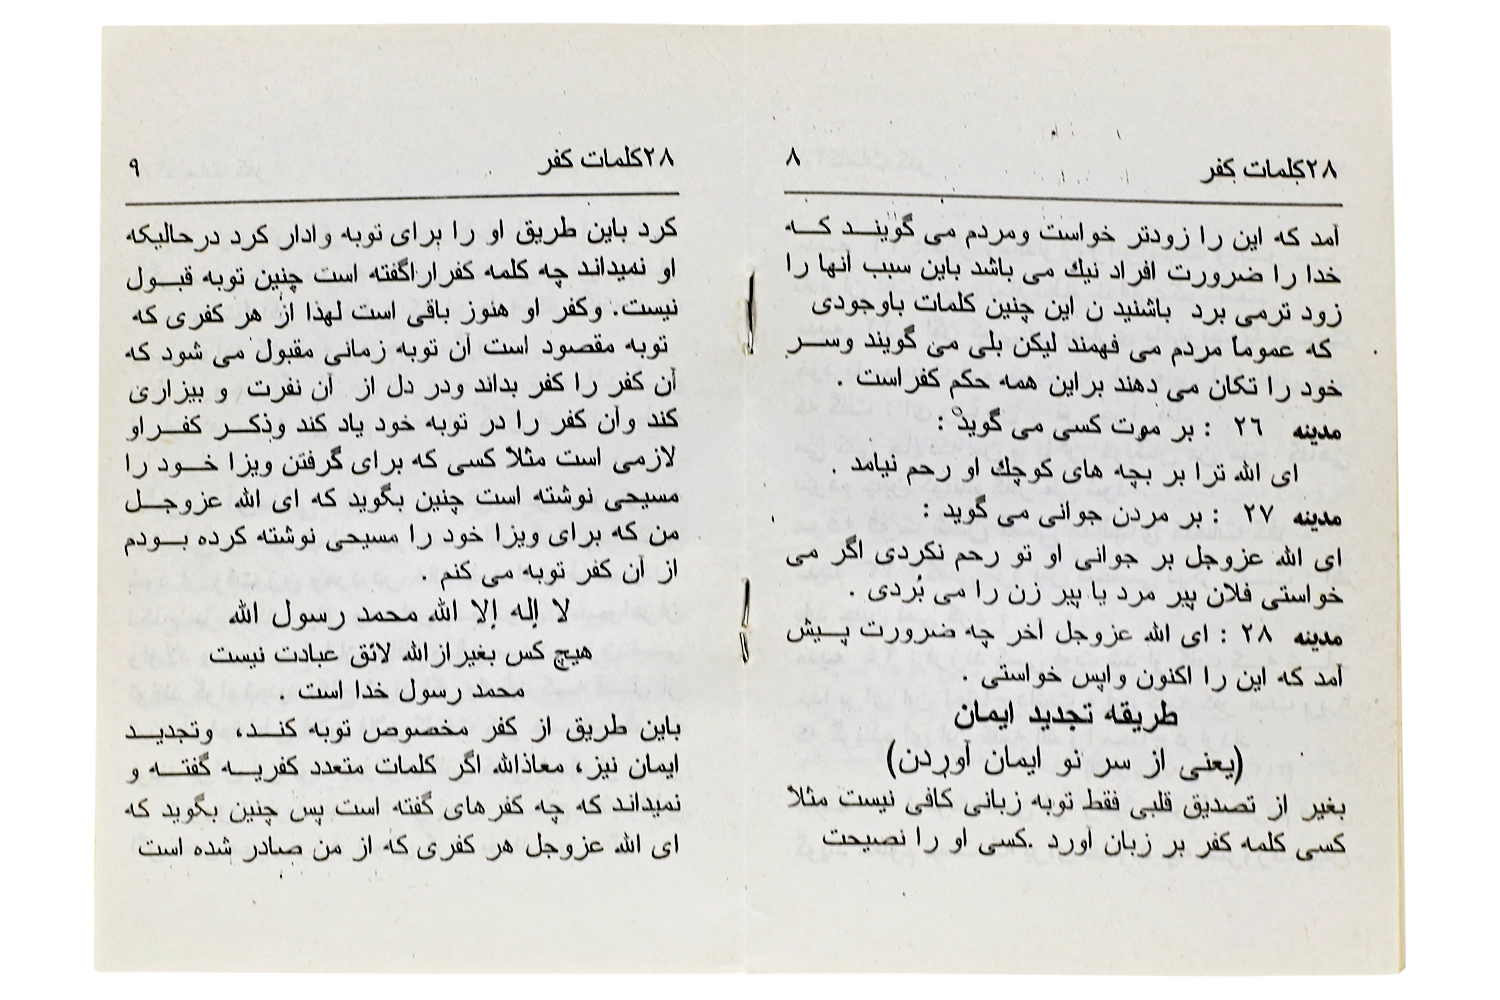 ۲۸کلمات کفر ۸
آمد که این را زودتر خواست ومردم می گویند که
خدا را ضرورت افراد نیك می باشد باین سبب آنها را
زود ترمی برد باشنید ن این چنین کلمات باوجودی
که عموماً مردم می فهمند لیکن بلی می گویند وسر
خود را تکان می دهند براین همه حکم کفراست .
مدینه ۲٦ : بر موت کسی می گوید :
ای الله ترا بر بچه های کوچك او رحم نیامد .
مدینه ۲۷ : بر مردن جوانی می گوید :
ای الله عزوجل بر جوانی او تو رحم نکردی اگر می
خواستی فلان پیر مرد یا پیر زن را می بُردی .
مدینه ۲۸ : ای الله عزوجل آخر چه ضرورت پیش
آمد که این را اکنون واپس خواستی .
طریقه تجدید ایمان
(یعنی از سر نو ایمان آوردن)
بغیر از تصدیق قلبی فقط توبه زبانی کافی نیست مثلا
کسی کلمه کفر بر زبان آورد .کسی او را نصیحت
۲۸کلمات کفر ۹
کرد باین طریق او را برای توبه وادار کرد درحالیکه
او نمیداند چه کلمه کفراراگفته است چنین توبه قبول
نیست. وکفر او هنوز باقی است لهذا از هر کفری که
توبه مقصود است آن توبه زمانی مقبول می شود که
آن کفر را کفر بداند ودر دل از آن نفرت و بیزاری
کند وآن کفر را در توبه خود یاد کند وذکر کفراو
لازمی است مثلا کسی که برای گرفتن ویزا خود را
مسیحی نوشته است چنین بگوید که ای الله عزوجل
من که برای ویزا خود را مسیحی نوشته کرده بودم
از آن کفر توبه می کنم .
لا إله إلا الله محمد رسول الله
هیچ کس بغیرازالله لائق عبادت نیست
محمد رسول خدا است .
باین طریق از کفر مخصوص توبه کند، وتجدید
ایمان نیز، معاذالله اگر کلمات متعدد کفریه گفته و
نمیداند که چه کفرهای گفته است پس چنین بگوید که
ای الله عزوجل هر کفری که از من صادر شده است